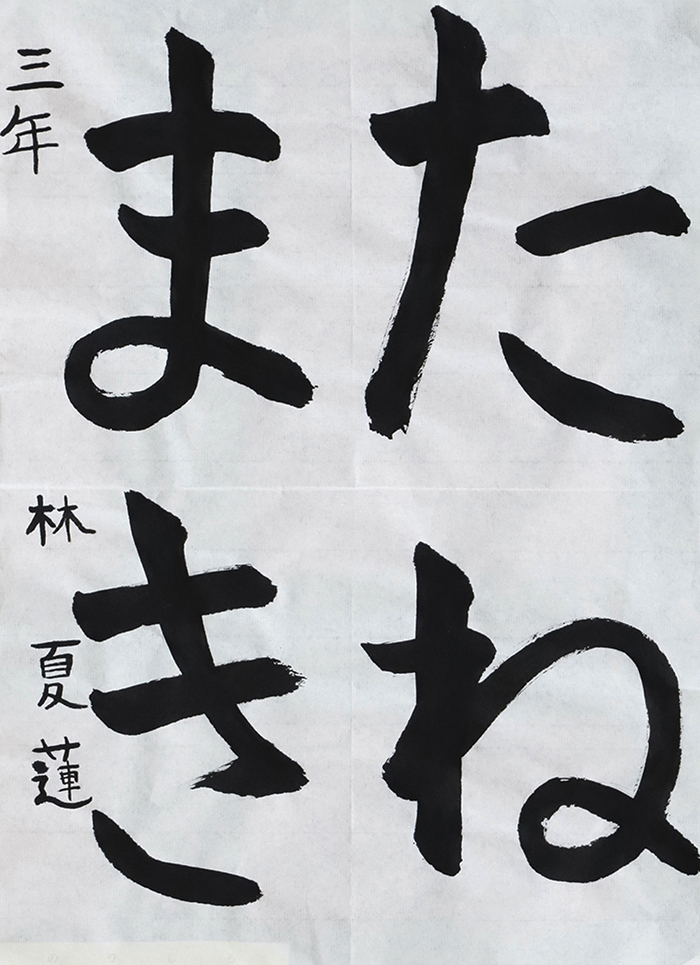 たね
まき
三年 林 夏蓮